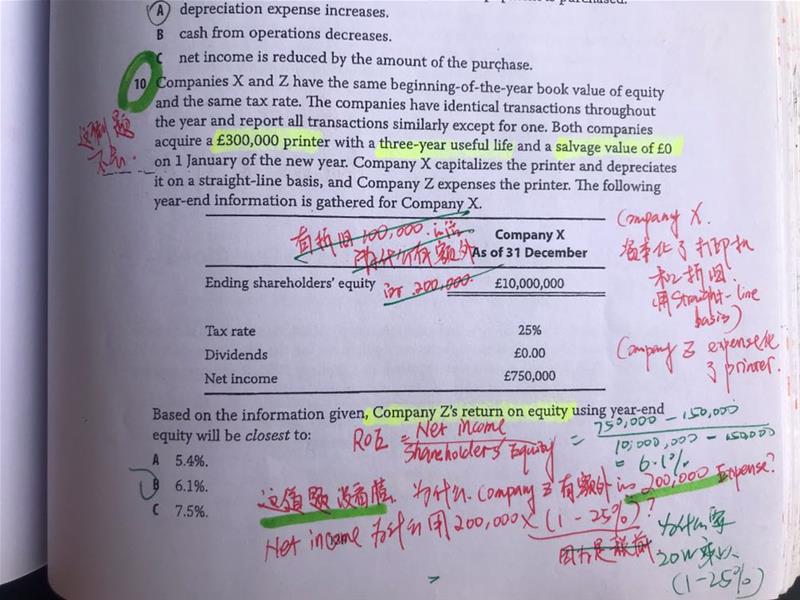 A depreciation expense increases.
B cash from operations decreases.
C net income is reduced by the amount of the purchase.
10 Companies X and Z have the same beginning-of-the-year book value of equity
and the same tax rate. The companies have identical transactions throughout
the year and report all transactions similarly except for one. Both companies
acquire a £300,000 printer with a three-year useful life and a salvage value of £0
on 1 January of the new year. Company X capitalizes the printer and depreciates
it on a straight-line basis, and Company Z expenses the printer. The following
year-end information is gathered for Company X.
Company X
As of 31 December
Ending shareholders' equity £10,000,000
Tax rate 25%
Dividends £0.00
Net income £750,000
Company X
资本化了打印机
和折旧
用Straight-line
basis)
Company Z expense化
了printer.
Based on the information given, Company Z's return on equity using year-end
equity will be closest to:
A 5.4%.
B 6.1%.
C 7.5%.
ROE = Net income / Shareholders' Equity = 750,000 - 150,000 / 10,000,000 - 150,000
= 6.1%
为什么 Company Z 有额外 200,000 Expense?
Net income 为什么用 200,000 × (1-25%)?
为什么要
20W乘以
(1-25%)